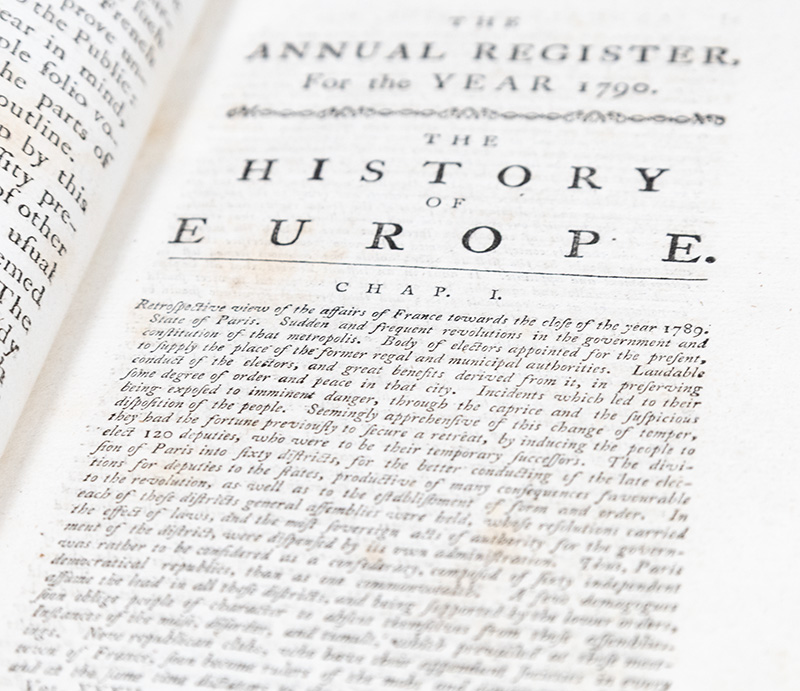 French
prove un-
o the Public:
ear in mind,
ple folio vo-
he parts of
outline.
p by this
lity pre-
of other
uſual
emed
The
dy
THE
ANNUAL REGISTER,
For the YEAR 1790.
THE
HISTORY
OF
EUROPE.
CHAP. I.
Retroſpective view of the affairs of France towards the cloſe of the year 1789.
State of Paris. Sudden and frequent revolutions in the government and
conſtitution of that metropolis. Body of electors appointed for the preſent,
to ſupply the place of the former regal and municipal authorities. Laudable
conduct of the electors, and great benefits derived from it, in preſerving
ſome degree of order and peace in that city. Incidents which led to their
being expoſed to imminent danger, through the caprice and the ſuſpicious
diſpoſition of the people. Seemingly apprehenſive of this change of temper,
they had the fortune previouſly to ſecure a retreat, by inducing the people to
elect 120 deputies, who were to be their temporary ſucceſſors. The divi-
ſion of Paris into ſixty diſtricts, for the better conducting of the late elec-
tions for deputies to the ſtates, productive of many conſequences favourable
to the revolution, as well as to the eſtabliſhment of form and order. In
each of theſe diſtricts general aſſemblies were held, whoſe reſolutions carried
the effect of laws, and the moſt ſovereign acts of authority for the govern-
ment of the diſtrict, were diſpenſed by its own adminiſtration. Thus, Paris
was rather to be conſidered as a confederacy, compoſed of ſixty independent
democratical republics, than as one commonwealth. A few demagogues
aſſume the lead in all theſe diſtricts, and being ſupported by the lower orders,
ſoon oblige people of character to abſent themſelves from theſe aſſemblies.
Inſtances of the noiſe, diſorder, and tumult, which prevailed at theſe meet-
ings. New republican clubs, who have their appendent ſocieties in every
town of France, ſoon become rulers of the
and at the ſame time